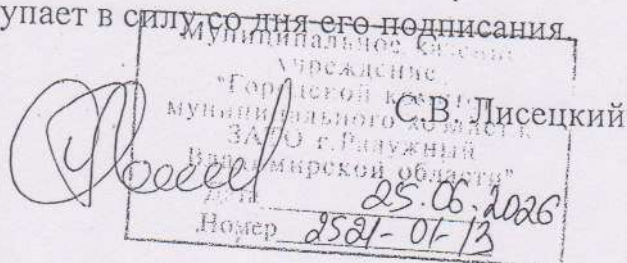 упает в силу со дня его подписания.
Муниципальное казенное
учреждение
"Городской комитет
муниципального хозяйства
С.В. Лисецкий
ЗАТО г.Радужный
Владимирской области"
Дата 25.06.2026
Номер 2521-01-13